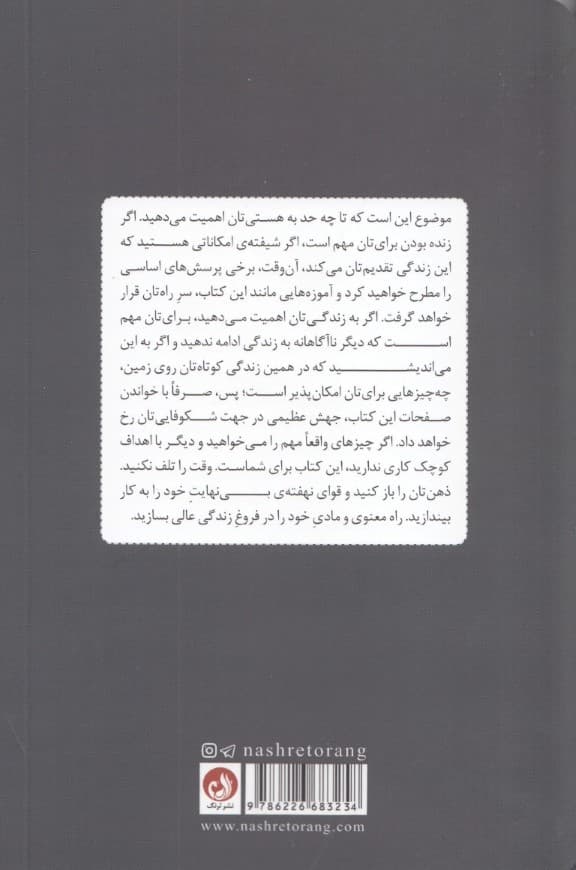 موضوع این است که تا چه حد به هستی‌تان اهمیت می‌دهید. اگر
زنده بودن برای‌تان مهم است، اگر شیفته‌ی امکاناتی هستید که
این زندگی تقدیم‌تان می‌کند، آن‌وقت، برخی پرسش‌های اساسی
را مطرح خواهید کرد و آموزه‌هایی مانند این کتاب، سرِ راه‌تان قرار
خواهد گرفت. اگر به زندگی‌تان اهمیت می‌دهید، برای‌تان مهم
است که دیگر ناآگاهانه به زندگی ادامه ندهید و اگر به این
می‌اندیشید که در همین زندگی کوتاه‌تان روی زمین،
چه‌چیزهایی برای‌تان امکان‌پذیر است؛ پس، صرفاً با خواندن
صفحات این کتاب، جهش عظیمی در جهت شکوفایی‌تان رخ
خواهد داد. اگر چیزهای واقعاً مهم را می‌خواهید و دیگر با اهداف
کوچک کاری ندارید، این کتاب برای شماست. وقت را تلف نکنید.
ذهن‌تان را باز کنید و قوای نهفته‌ی بی‌نهایتِ خود را به کار
بیندازید. راه معنوی و مادیِ خود را در فروغِ زندگی عالی بسازید.
nashretorang
نشر ترنگ
9 786226 683234
www.nashretorang.com